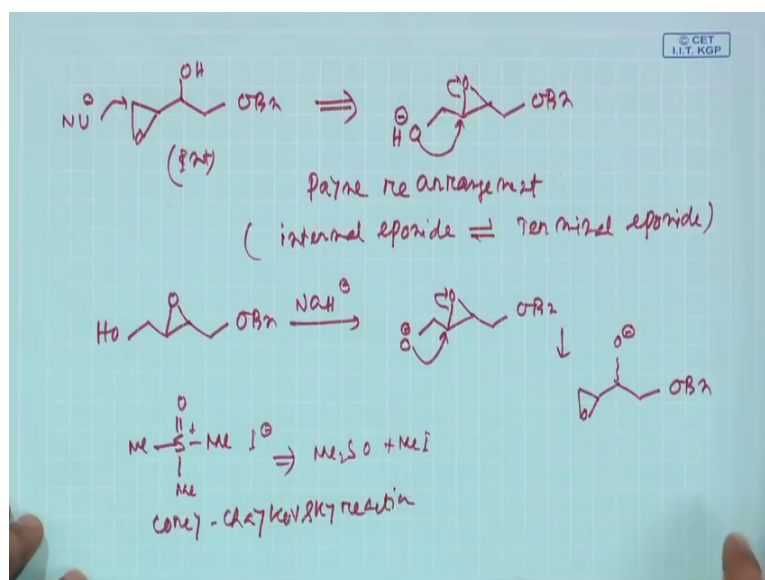 © CET
I.I.T. KGP
OH
NU⊖ OBn ⇒ OBn
O ⊖
HO
(Int)
Payne rearrangement
( internal epoxide ⇌ Terminal epoxide)
HO O OBn NaH⊖ O OBn
⊖
O
O⊖
O OBn
O
Me-S+-Me I⊖ ⇒ Me2SO + MeI
Me
Corey-Chaykovsky reaction